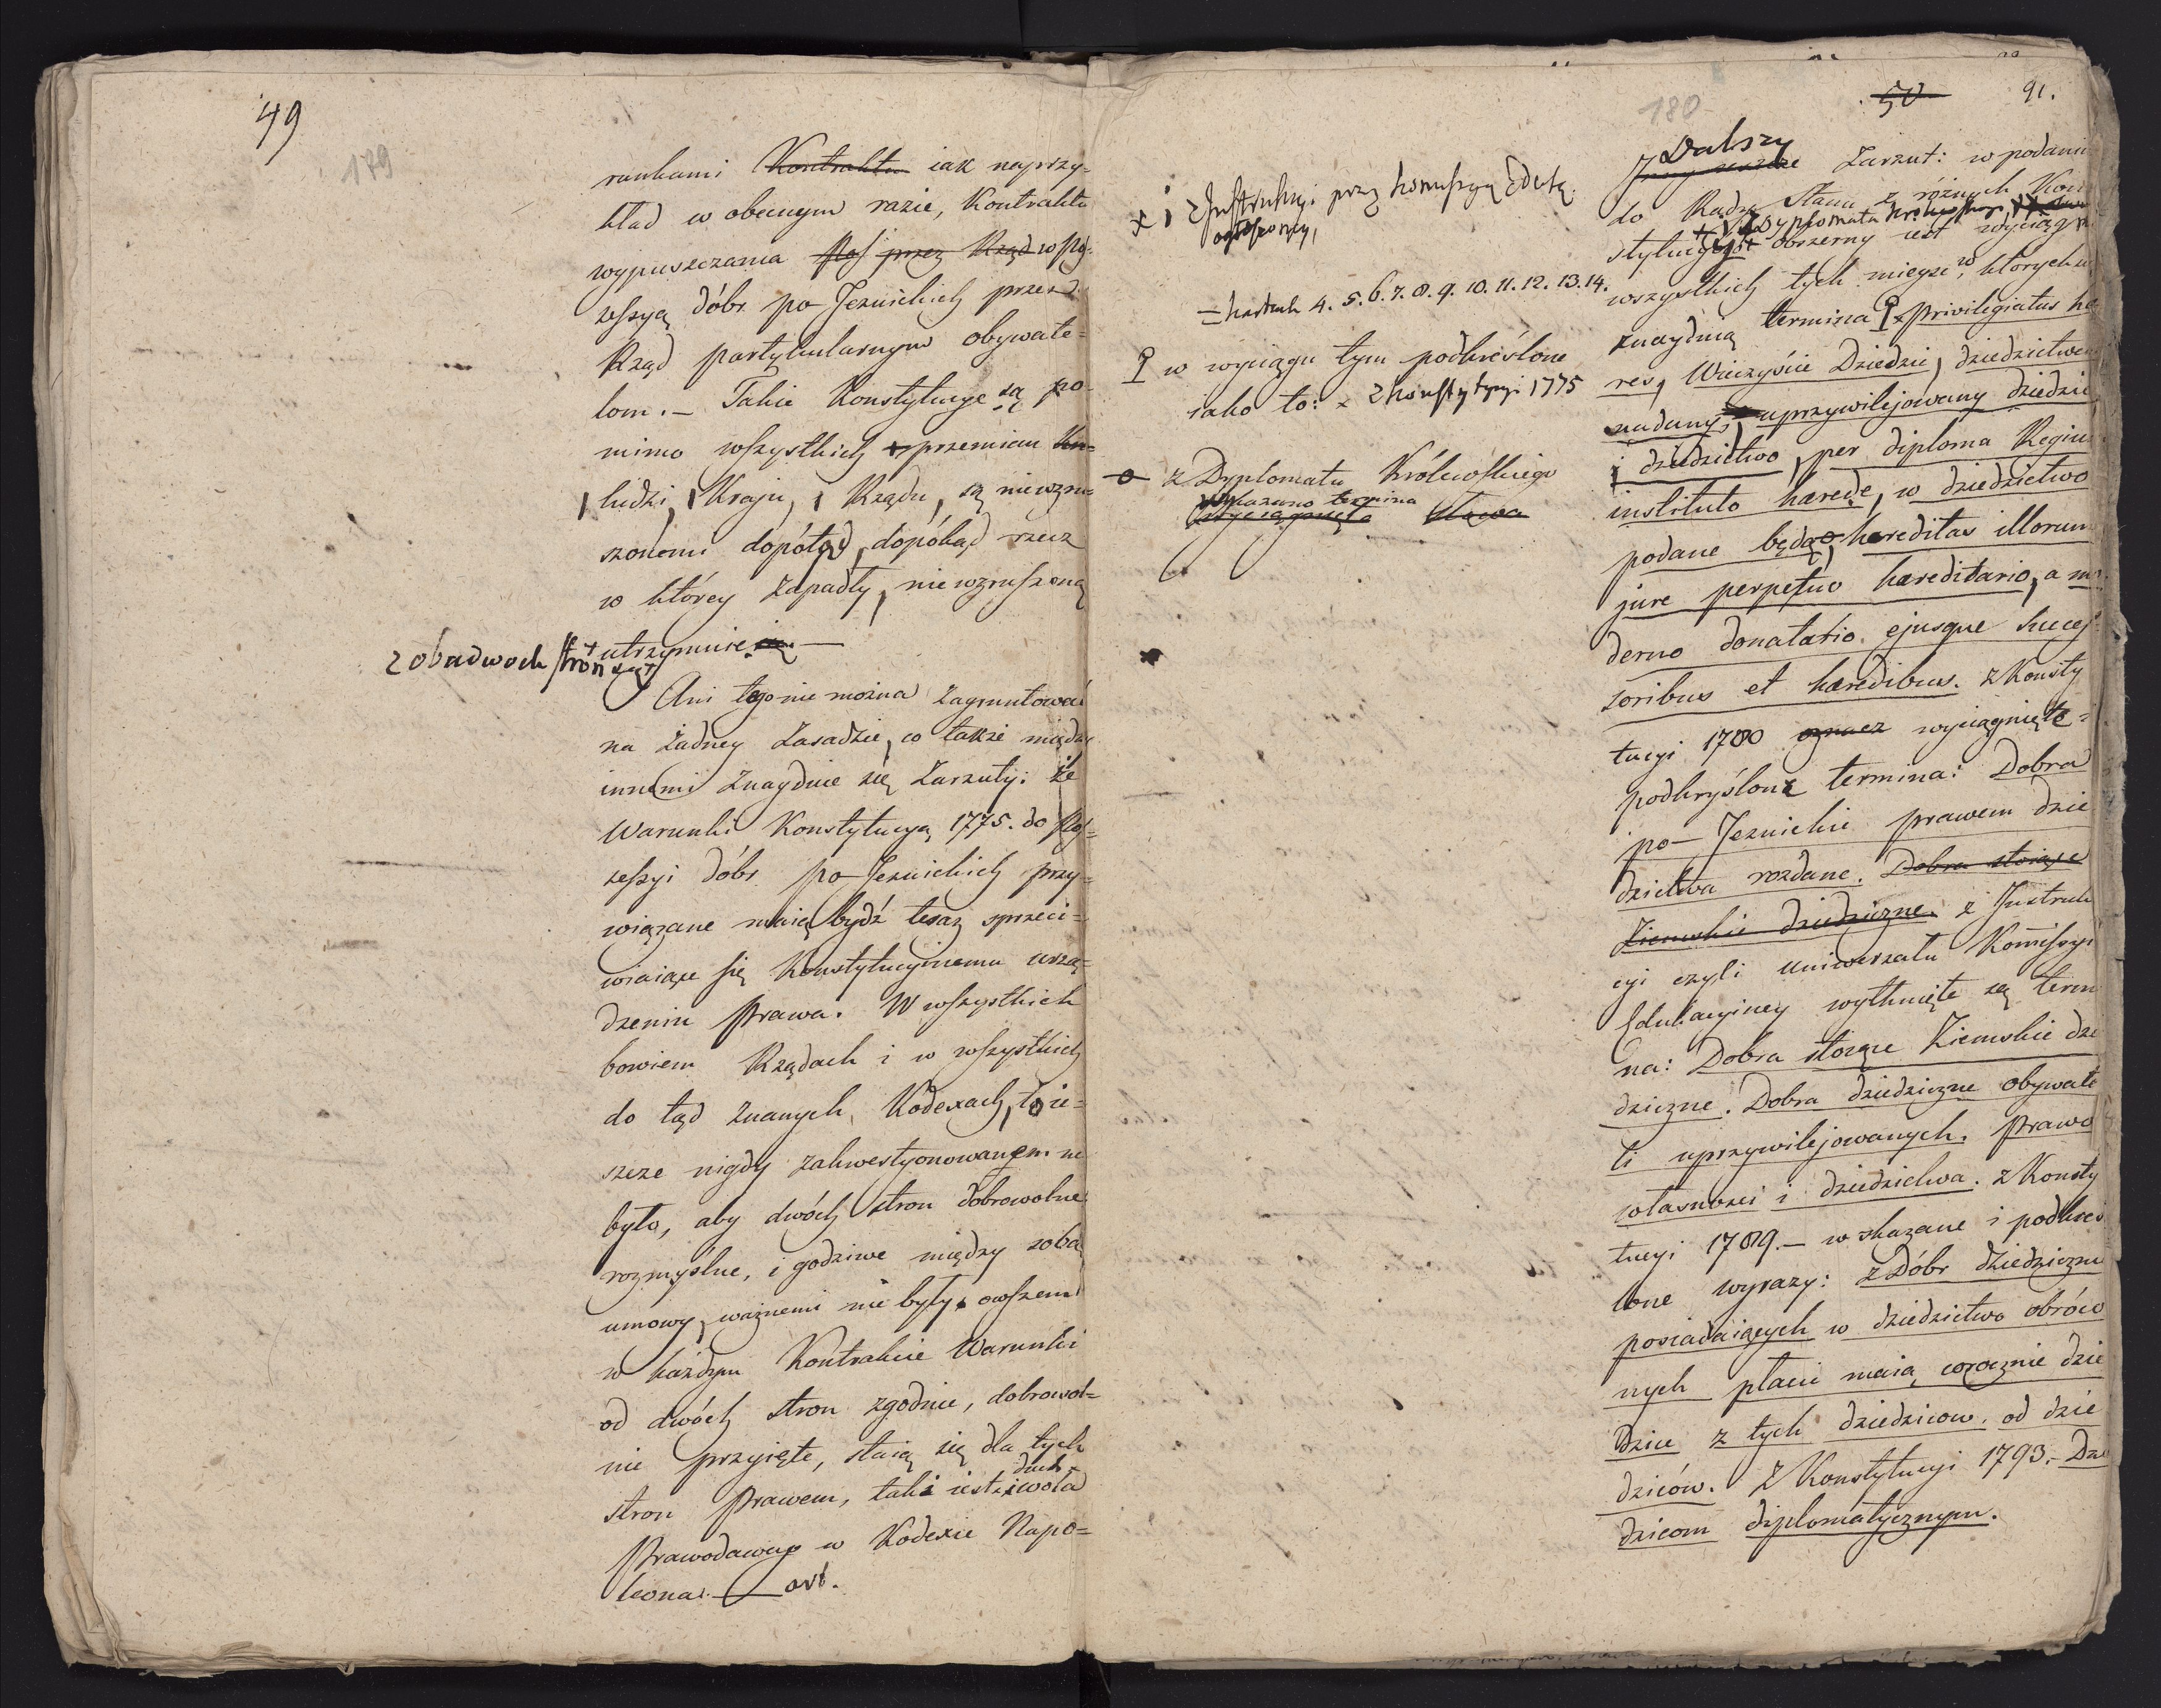 49
179
runkami Kontraktu iak naprzy-
kład w obecnym razie, Kontraktu
wypuszczania Pos przez Rząd w Pos-
sessyą dóbr po-Jezuickich przez
Rząd partykularnym obywate-
lom. — Takie Konstytucye są po-
mimo wszystkich przemian
ludzi, Kraju, Rządu, są niewzru-
szonemi dopótąd, dopókąd rzecz
w którey zapadły, niewzruszoną
z obudwoch stron
utrzymuie się. —
Ani tego nie można zagruntować
na żadney Zasadzie, co także między
innemi znayduie się Zarzuty: że
Warunki Konstytucyą 1775. do Pos-
sessyi dóbr po-Jezuickich przy-
wiązane maią bydź teraz sprzeci-
wiaiące się Konstytucyinemu urzą-
dzeniu Prawa. W wszystkich
bowiem Rządach i w wszystkich
do tąd znanych Kodexach, to ie-
szcze nigdy zakwestyonowanem nie
było, aby dwóch stron dobrowolne
rozmyślne, i godziwe między sobą
umowy, ważnemi nie były, owszem
w każdym Kontrakcie Warunki
od dwóch stron zgodnie, dobrowol-
nie przyięte, staią się dla tych
duch
stron Prawem, taki iest i wola
Prawodawcy w Kodexie Napo-
leona. — art.
180
50
91.
x i z Instrukcyi przez Kommissyą Eduk.
ogłoszoney,
= kartach 4. 5. 6. 7. 8. 9. 10. 11. 12. 13. 14.
w wyciągu tym podkreślone
iako to: x z Konstytucyi 1775
z Dyplomatu Królewskiego
wskazano termina
wyciągnięto Słowa
Dalszy
Inny ieszcze Zarzut: w podaniu
do Rady Stanu z różnych Kon
z Dyplomatu Królewskiego
stytucyi obszerny iest wyciąg
wszystkich tych mieysc, w których
znayduią termina privilegiatus hæ
res, Wieczyście Dziedzic, dziedzictwem
nadany, uprzywilejowany dziedzic
i dziedzictwo, per diploma Regium
instituto hærede, w dziedzictwo
podane będą, hæreditas illorum
jure perpetuo hæreditario, a mo
derno donatario ejusque succes
soribus et hæredibus. z Konsty
tucyi 1780 wyciągnięte
podkryślone termina: Dobra
po-Jezuickie prawem dzie
dzictwa rozdane. Dobra stoiące
Ziemskie dziedziczne. z Instruk
cyi czyli Uniwersału Komissyi
Edukacyiney wytknięte są termi
na: Dobra stoiące Ziemskie dzie
dziczne. Dobra dziedziczne obywate
li uprzywilejowanych. Prawo
własności i dziedzictwa. z Konsty
tucyi 1789. — wskazane i podkreś
lone wyrazy: z Dóbr dziedziczne
posiadaiących w dziedzictwo obróco
nych płacić maią corocznie dzie
dzice z tych dziedziców. od dzie
dziców. z Konstytucyi 1793. — Dzie
dzicom diplomatycznym.